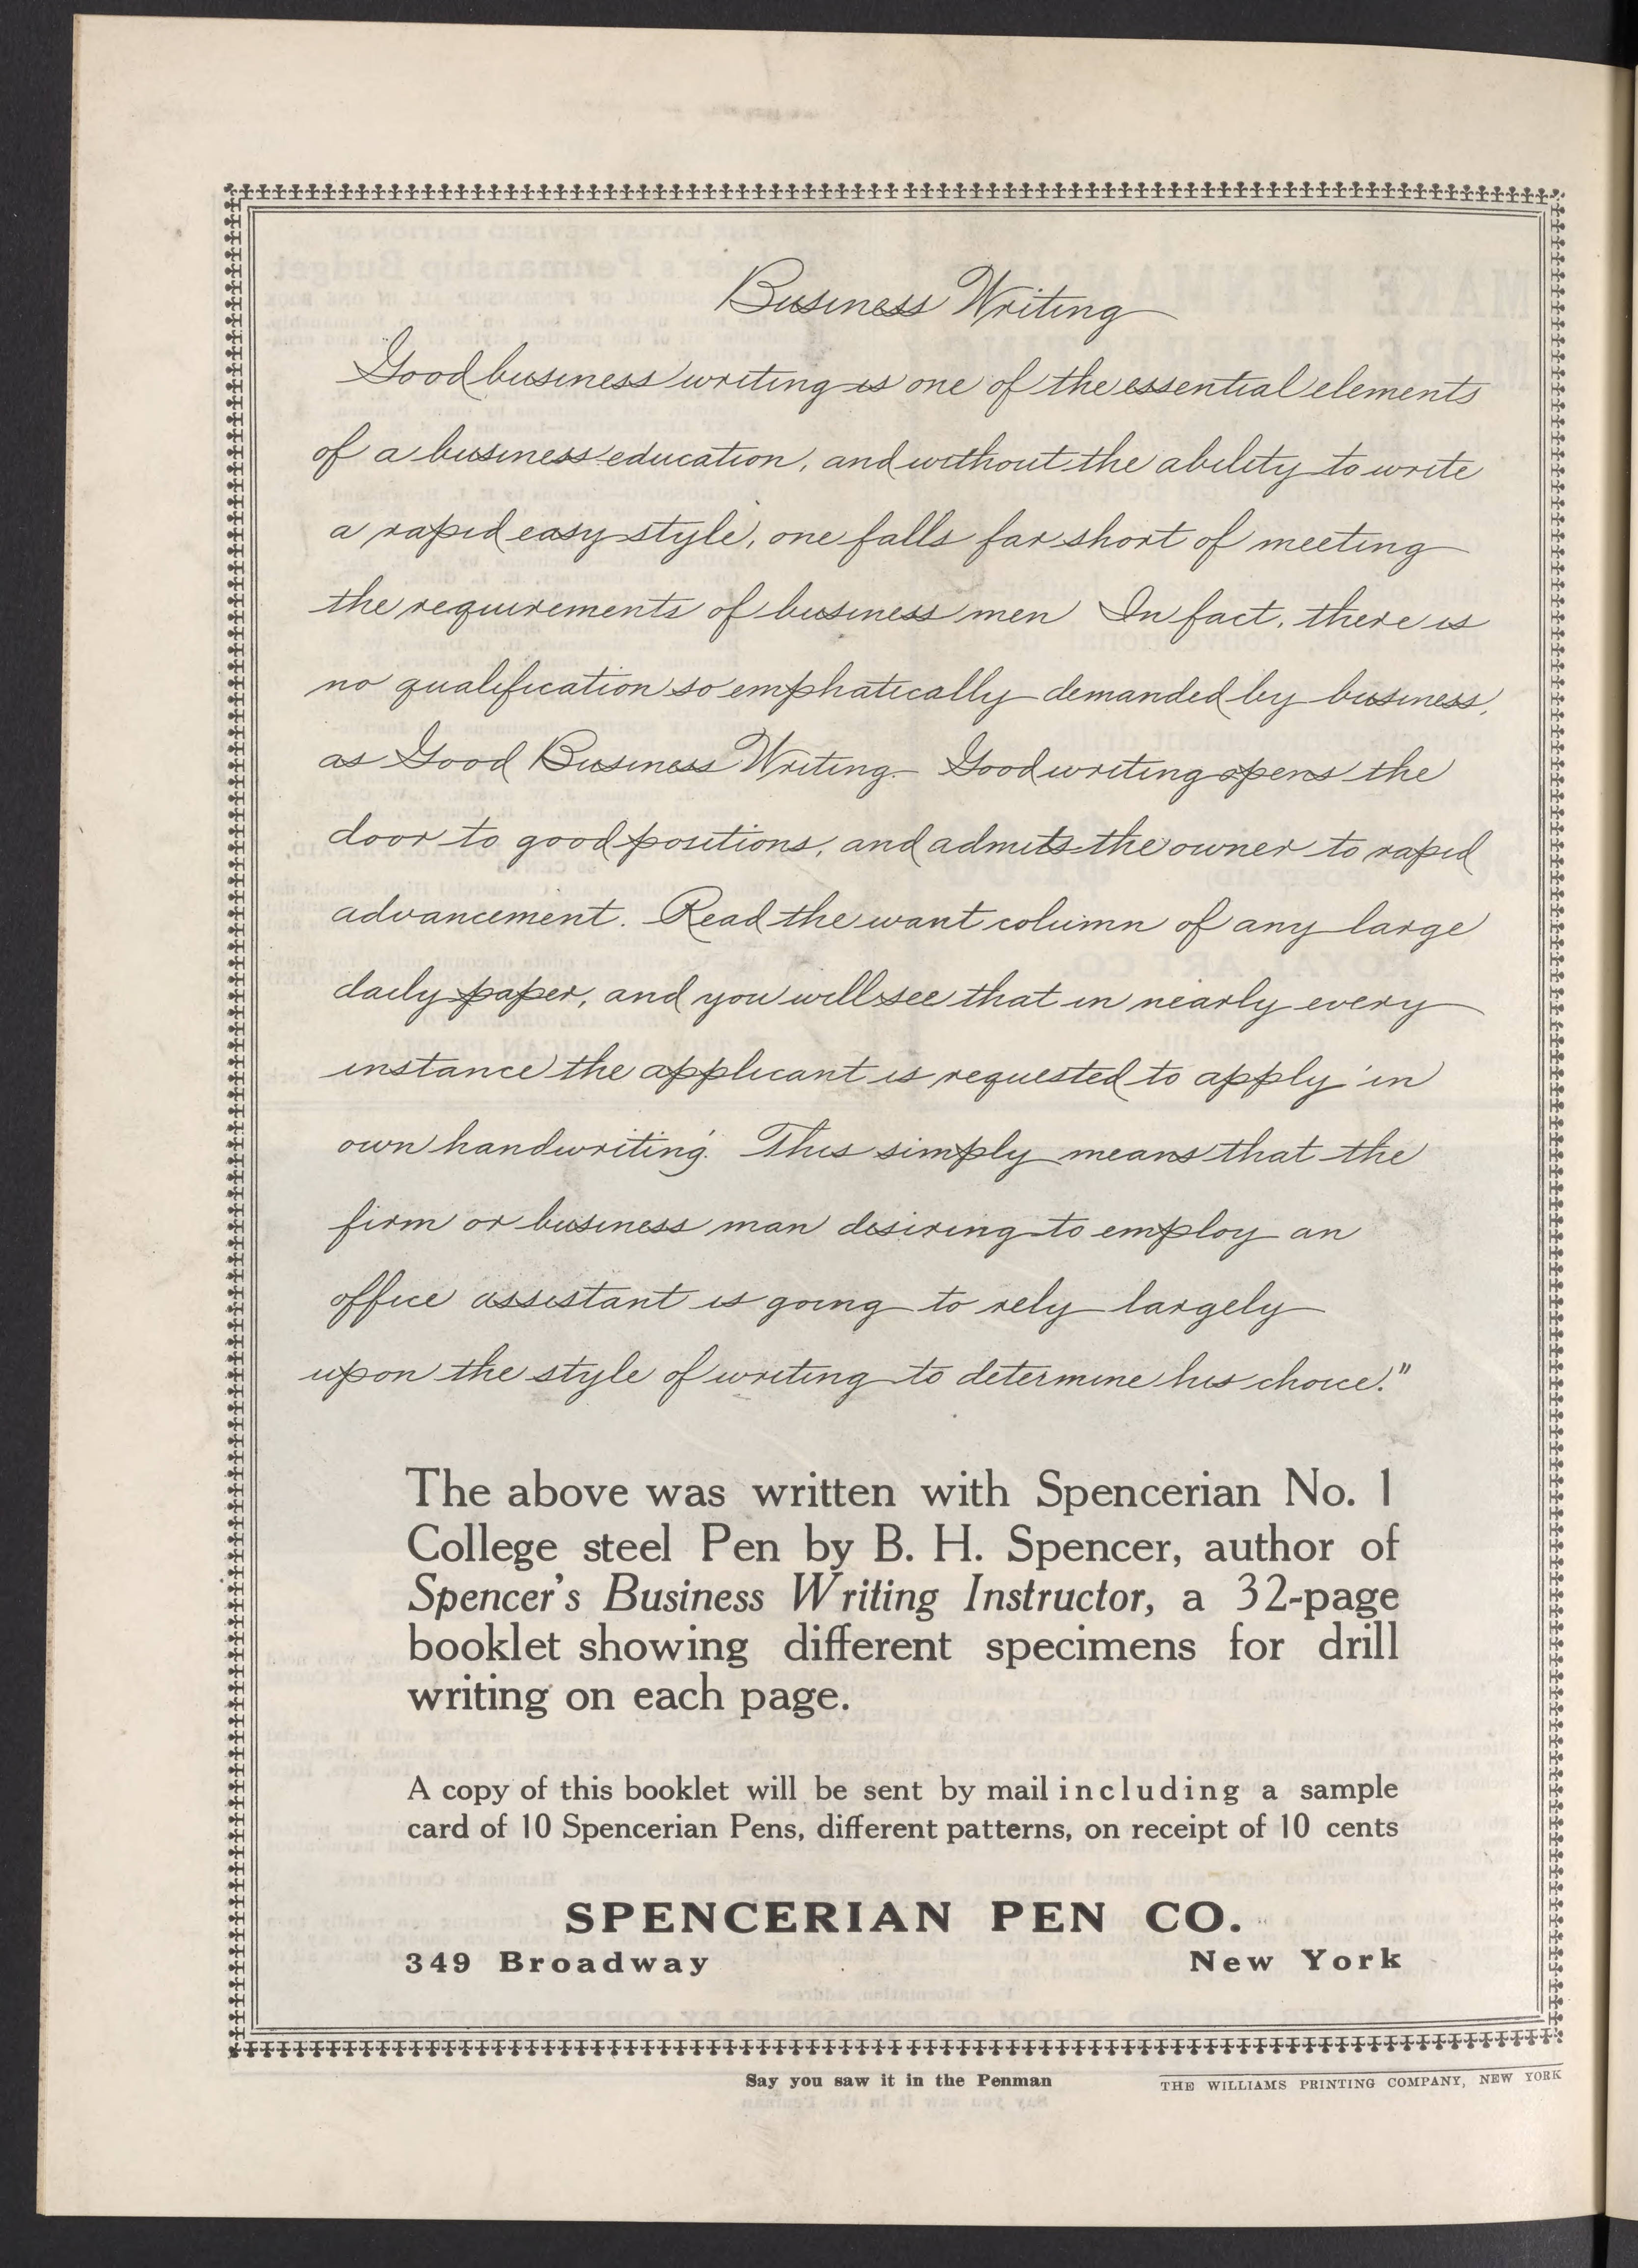 Business Writing
"Good business writing is one of the essential elements
of a business education, and without the ability to write
a rapid easy style, one falls far short of meeting
the requirements of business men In fact, there is
no qualification so emphatically demanded by business,
as Good Business Writing. Good writing opens the
door to good positions, and admits the owner to rapid
advancement. Read the want column of any large
daily paper, and you will see that in nearly every
instance the applicant is requested to apply 'in
own handwriting'. This simply means that the
firm or business man desiring to employ an
office assistant is going to rely largely
upon the style of writing to determine his choice."
The above was written with Spencerian No. 1
College steel Pen by B. H. Spencer, author of
Spencer's Business Writing Instructor, a 32-page
booklet showing different specimens for drill
writing on each page.
A copy of this booklet will be sent by mail including a sample
card of 10 Spencerian Pens, different patterns, on receipt of 10 cents
SPENCERIAN PEN CO.
349 Broadway New York
Say you saw it in the Penman
THE WILLIAMS PRINTING COMPANY, NEW YORK